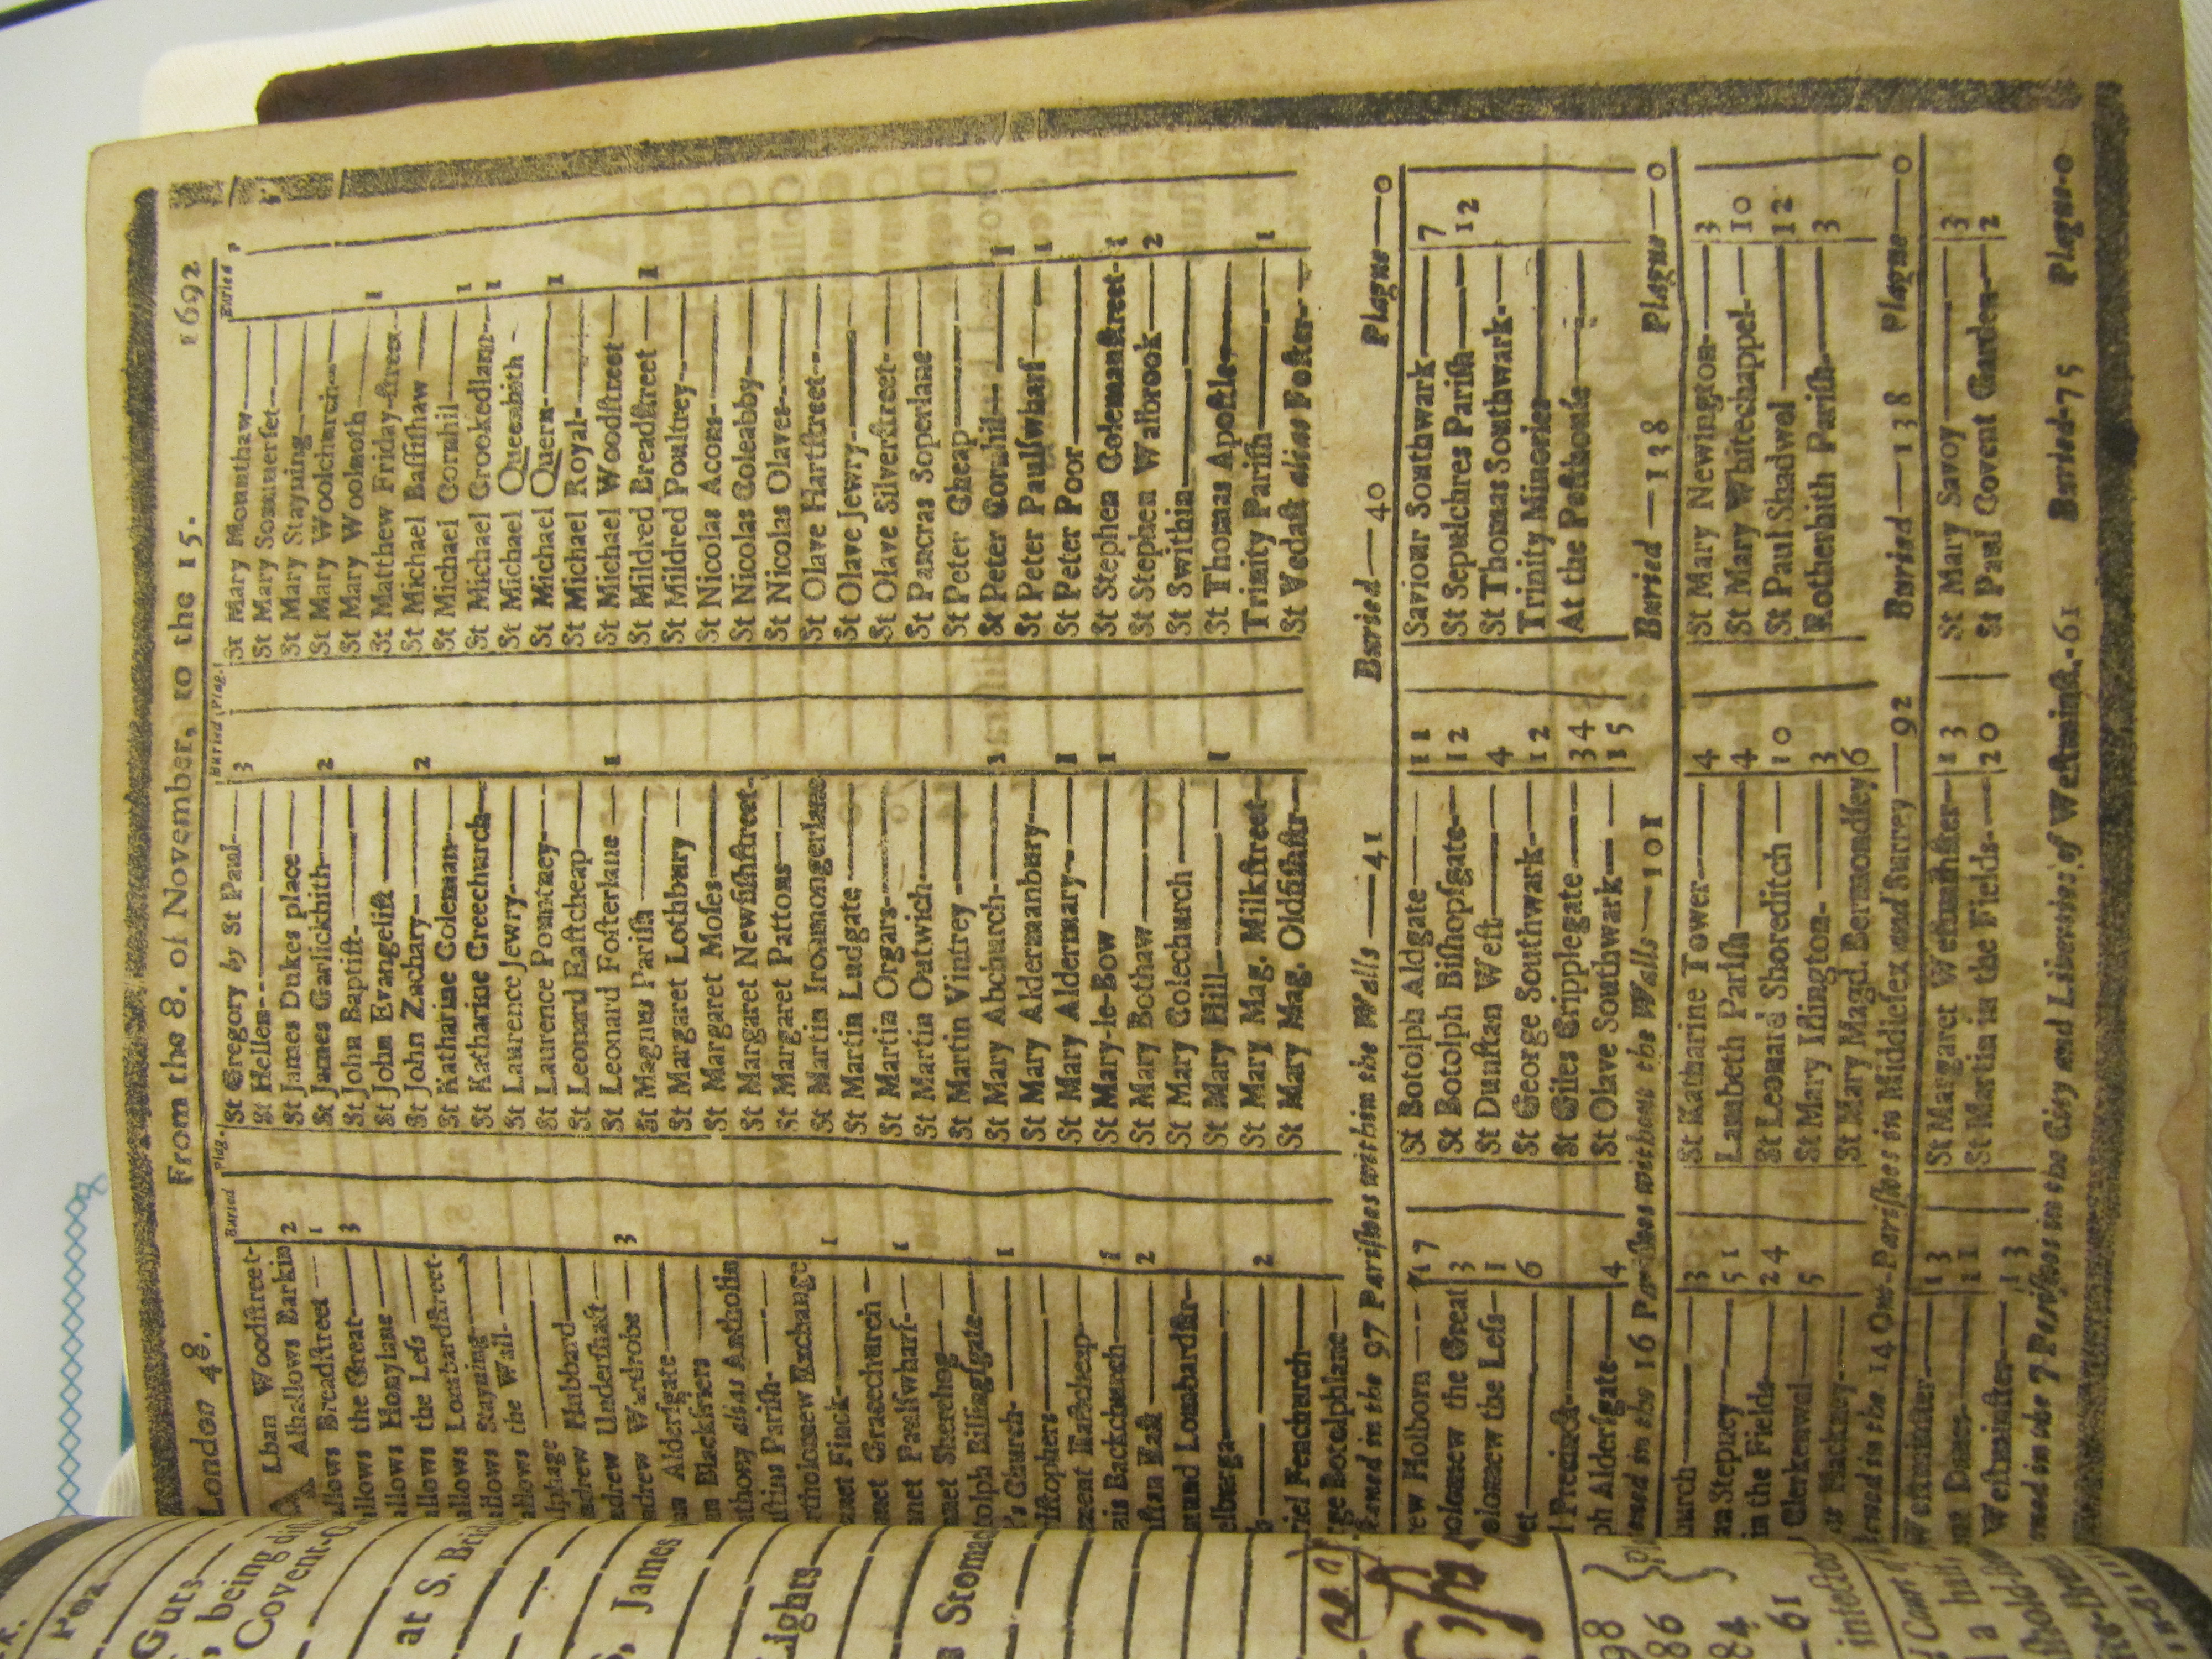 London 48. From the 8. of November, to the 15. 1692
Buried Plag.
Lban Woodſtreet-
A Alhallows Barkin 2
allows Breadſtreet — 1
allows the Great— 3
allows Honylane
allows the Leſs
allows Lombardſtreet-
allows Stayning
allows the Wall-
lphage
ndrew Hubbard
ndrew Underſhaft
ndrew Wardrobe 3
Alderſgate
Blackfriers
athony alias Antholin
uſtins Pariſh-
rtholomew Exchange
nnet Finck— 1
nnet Gracechurch
nnet Paulſwharf- 1
nnet Sherehog
tolph Billingſgate
's Church- 1
riſtophers
ment Eaſtcheap
nis Backchurch 1
nſtan Eaſt 2
mund Lombardſtr-
elburga
2
riel Fenchurch
ge Botolphlane
Buried Plag.
St Gregory by St Paul 3
St Hellen
St James Dukes place
St James Garlickhith 2
St John Baptiſt-
St John Evangeliſt
St John Zachary 2
St Katharine Coleman
St Katharine Creechurch
St Laurence Jewry
St Laurence Pountney
St Leonard Eaſtcheap
St Leonard Foſterlane 1
St Magnus Pariſh
St Margaret Lothbury
St Margaret Moſes
St Margaret Newfiſhſtreet-
St Margaret Pattons
St Martin Ironmongerlane
St Martin Ludgate
St Martin Orgars
St Martin Outwich
St Martin Vintrey
St Mary Abchurch 1
St Mary Aldermanbury
St Mary Aldermary 1
St Mary-le-Bow 1
St Mary Bothaw
St Mary Colechurch
St Mary Hill 1
St Mary Mag. Milkſtreet
St Mary Mag. Oldfiſhſtr
Buried P
St Mary Mounthaw
St Mary Sommerſet
St Mary Stayning
St Mary Woolchurch
St Mary Woolnoth 1
St Matthew Friday-ſtreet
St Michael Baſſiſhaw
St Michael Cornhil 1
St Michael Crookedlane 1
St Michael Queenhith
St Michael Quern 1
St Michael Royal
St Michael Woodſtreet
St Mildred Breadſtreet 1
St Mildred Poultrey
St Nicolas Acons
St Nicolas Coleabby
St Nicolas Olaves
St Olave Hartſtreet
St Olave Jewry
St Olave Silverſtreet
St Pancras Soperlane
St Peter Cheap
St Peter Cornhil 1
St Peter Paulſwharf 1
St Peter Poor
St Stephen Colemanſtreet 1
St Stephen Walbrook 2
St Swithin
St Thomas Apoſtle
Trinity Pariſh 1
St Vedaſt alias Foſter
in the 97 Pariſhes within the Walls —41 Buried—40 Plague—0
rew Holborn 17
olomew the Great 3
olomew the Leſs 1
6
l Precinct
ph Alderſgate 4
St Botolph Aldgate 11
St Botolph Biſhopſgate 12
St Dunſtan Weſt 4
St George Southwark 12
St Giles Cripplegate 34
St Olave Southwark 15
Saviour Southwark 7
St Sepulchres Pariſh 12
St Thomas Southwark
Trinity Minories
At the Peſthouſe
in the 16 Pariſhes without the Walls—101 Buried—138 Plague—0
hurch 3
an Stepney 51
in the Fields 24
Clerkenwel 5
Hackney
St Katharine Tower 4
Lambeth Pariſh 4
St Leonard Shoreditch 10
St Mary Iſlington 3
St Mary Magd. Bermondſey 6
St Mary Newington 3
St Mary Whitechappel 10
St Paul Shadwel 12
Rotherhith Pariſh 3
in the 14 Out-Pariſhes in Middleſex and Surrey—92 Buried—138 Plague—0
13
Danes 11
Weſtminſter 13
St Margaret Weſtminſter 13
St Martin in the Fields 20
St Mary Savoy 3
St Paul Covent Garden 2
in the 7 Pariſhes in the City and Liberties of Weſtminſt.-61 Buried-75 Plague-0
Guts
being
Covent-
at S. Brid
James
Lights
Stomac
98
86
84
61
infected